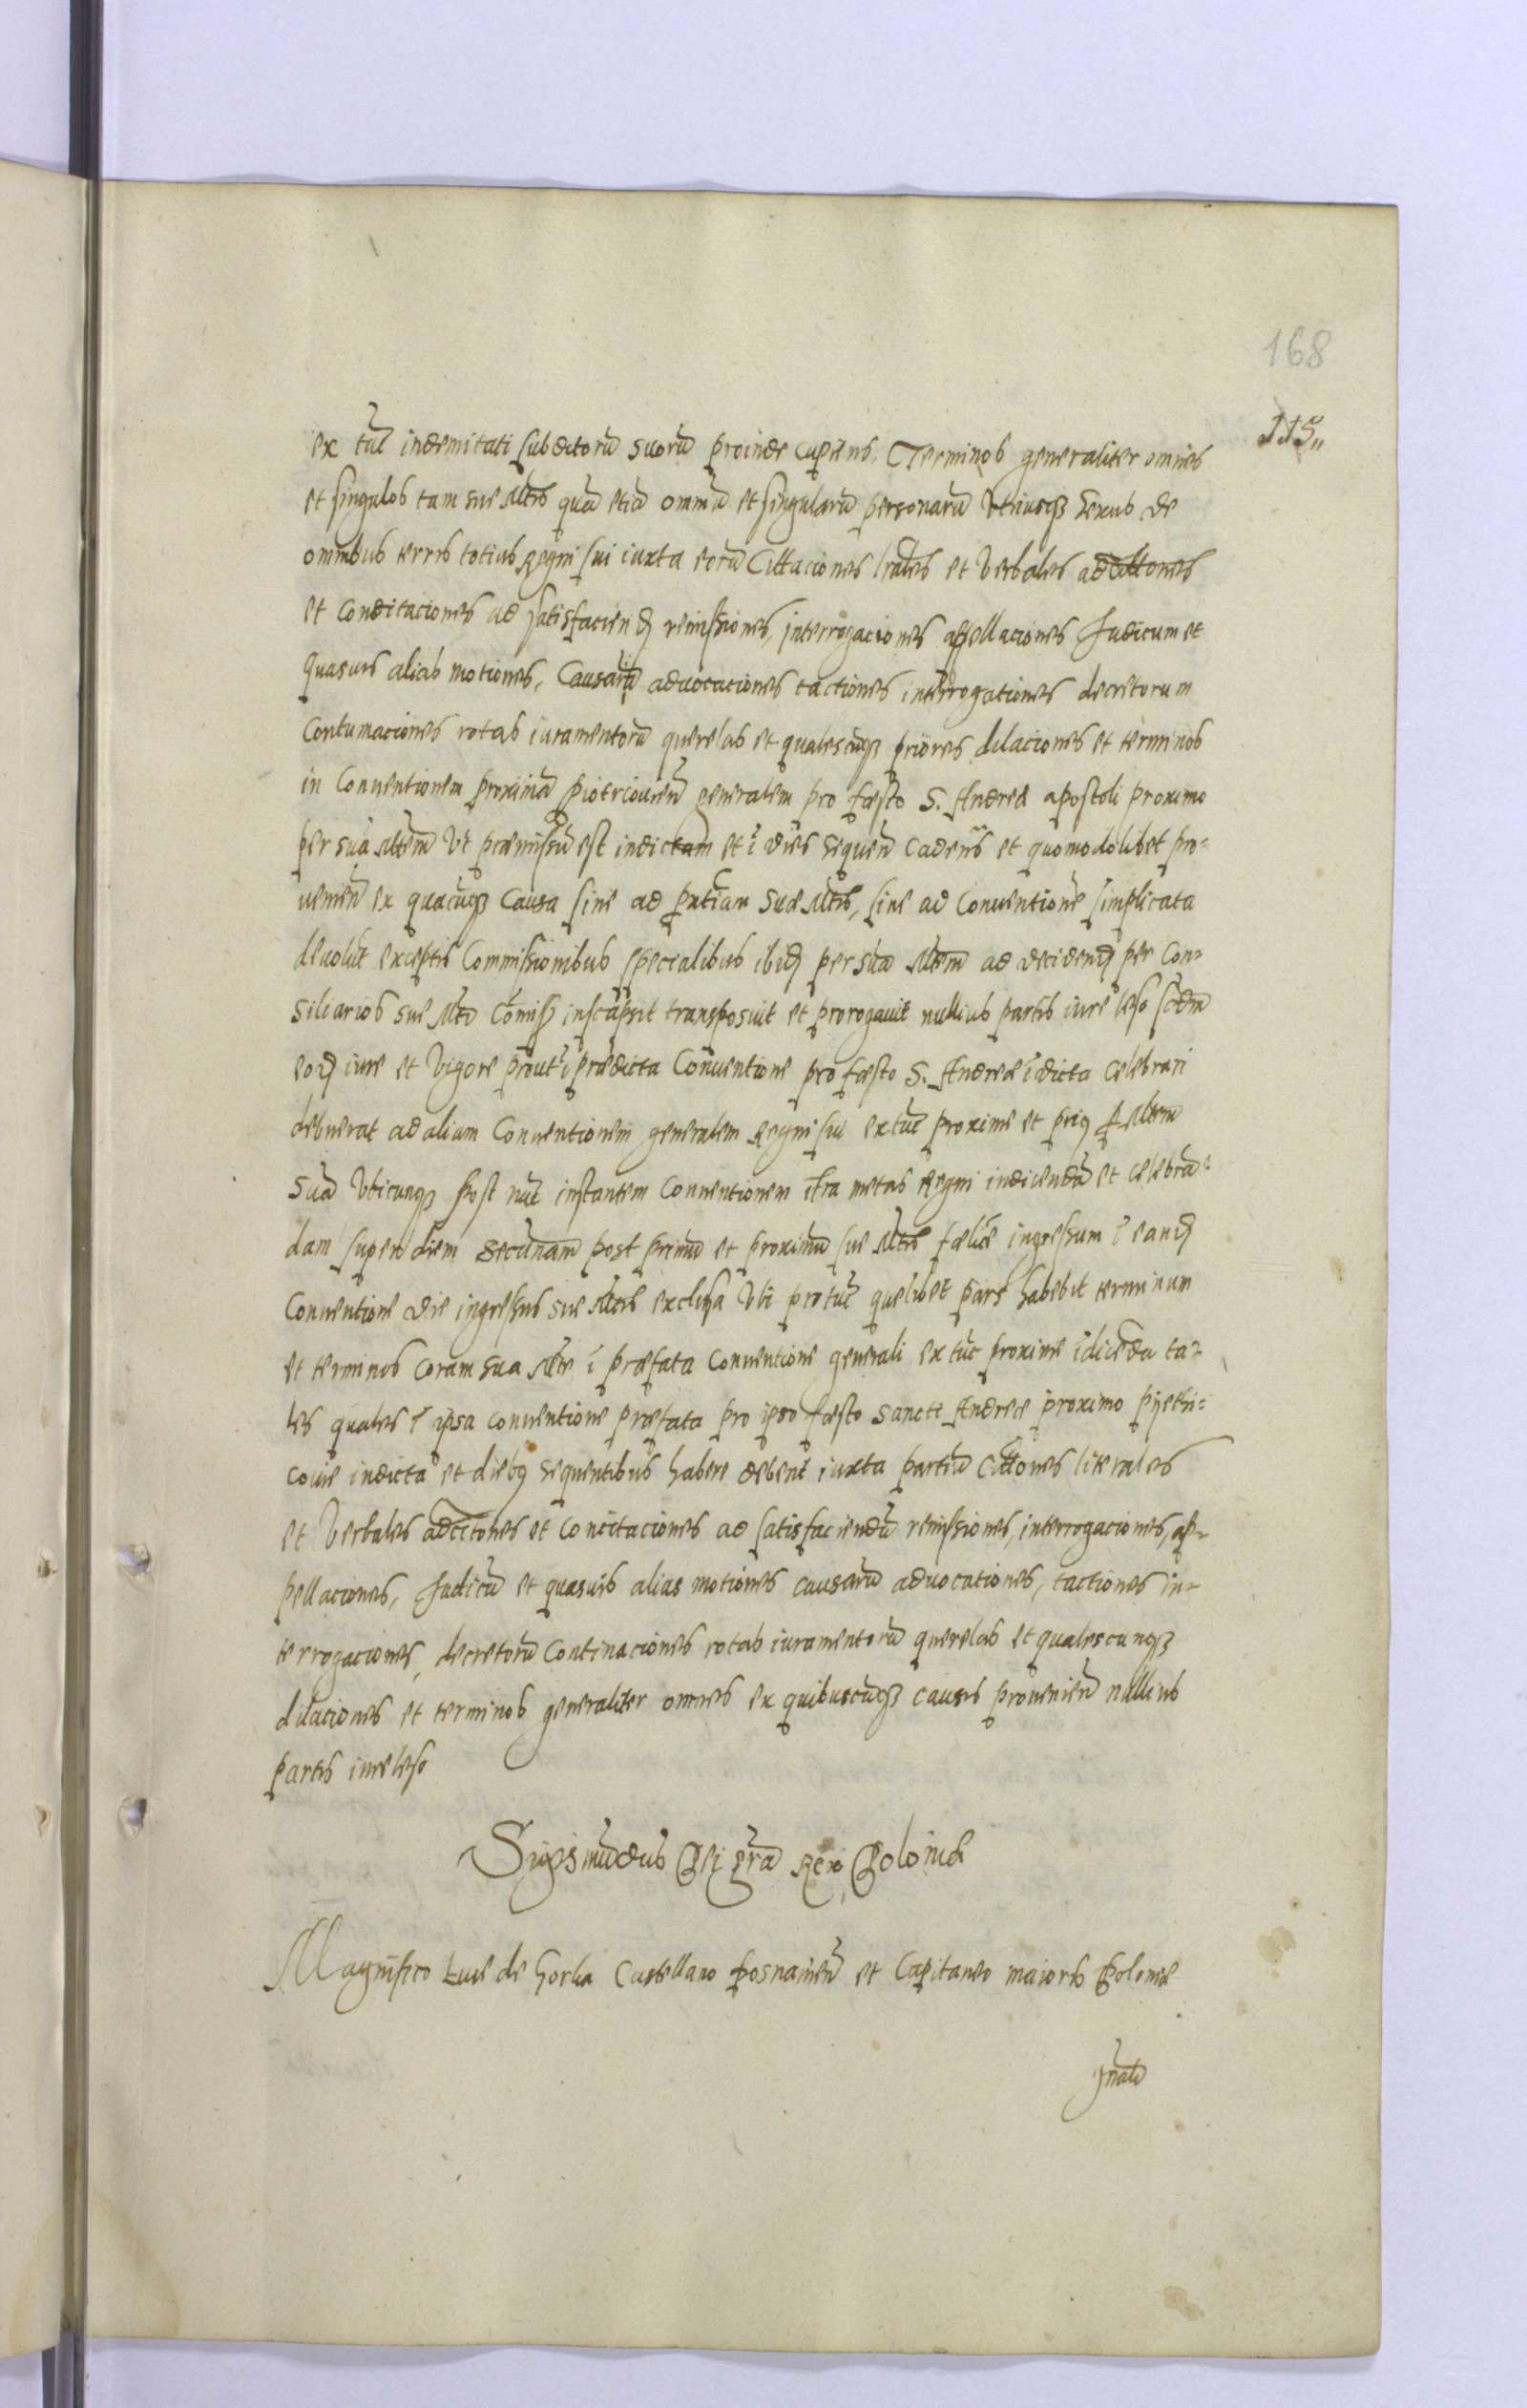 168
115
ex tūc indemitati subditorū suorū proinde cupiens, Terminos generaliter omnes
et singulos tam sue Mtis quā etiā omniū et singularū personarū utriusqȝ sexus de
omnibus terris totius Regni sui iuxta eorū Cittaciones lrales et verbales adcittones
et conditaciones ad satisfaciend remissiones, interrogaciones appellaciones Judicum et
quasuis alias motiones, Causarū aduocaciones tactiones interrogationes decretorum
Contumaciones rotas iuramentorū querelas et qualescūqȝ priores dilaciones et terminos
in Conuentionem proximā piotrcouien generalem pro fæsto S. Andreæ apostoli proximo
per suā Mtem ut præmissū est indictam et ī dies sequen cadens et quomodolibet pro-
uenien ex quacūqȝ Causa siue ad pntiam suæ Mtis, siue ad Conuentionē simplicata
deuolut exceptis Commissionibus specialibus ibid per suā Mtem ad decidend per Con-
siliarios sue Mtis Comiss inscripsit transposuit et prorogauit nullius partis iure leso
eod iure et vigore prout ī prædicta Conuentione pro fæsto S. Andreæ īdicta celebrari
debuerat ad aliam Conuentionem generalem Regni sui ex tūc proxime et priꝯ ꝑ Mtem
suā vbicunqȝ post nūc instantem Conuentionem īfra metas Regni indicendā et celebrā-
dam super diem secūnam post primū et proximū sue Mtis fælicē ingressum ī eand
Conuentione die ingressus sue Mtis exclusa vbi pro tūc quelibet pars habebit terminum
et terminos coram sua Mte ī præfata conuentione generali ex tūc proxime īdicēda ta-
les quales ī ipsa conuentione præfata pro ipso fæsto sancti Andreæ proximo pyethr-
couie indicta et diebꝯ sequentibus habere debent iuxta partiū cittones literales
et verbales adcitones et concitaciones ad satisfaciendū remissiones, interrogaciones, ap-
pellaciones, Judicū et quasuis alias motiones causarū aduocationes, tactiones in-
terrogaciones, decretorū Continaciones rotas iuramentorū querelas et qualescunqȝ
dilaciones et terminos generaliter omnes ex quibuscūqȝ causis prouenien nullius
partis iure leso
Sigismūdus Dei grā Rex Poloniæ
Magnifico Luce de Gorka Castellano posnanien et Capitaneo maioris Poloniæ